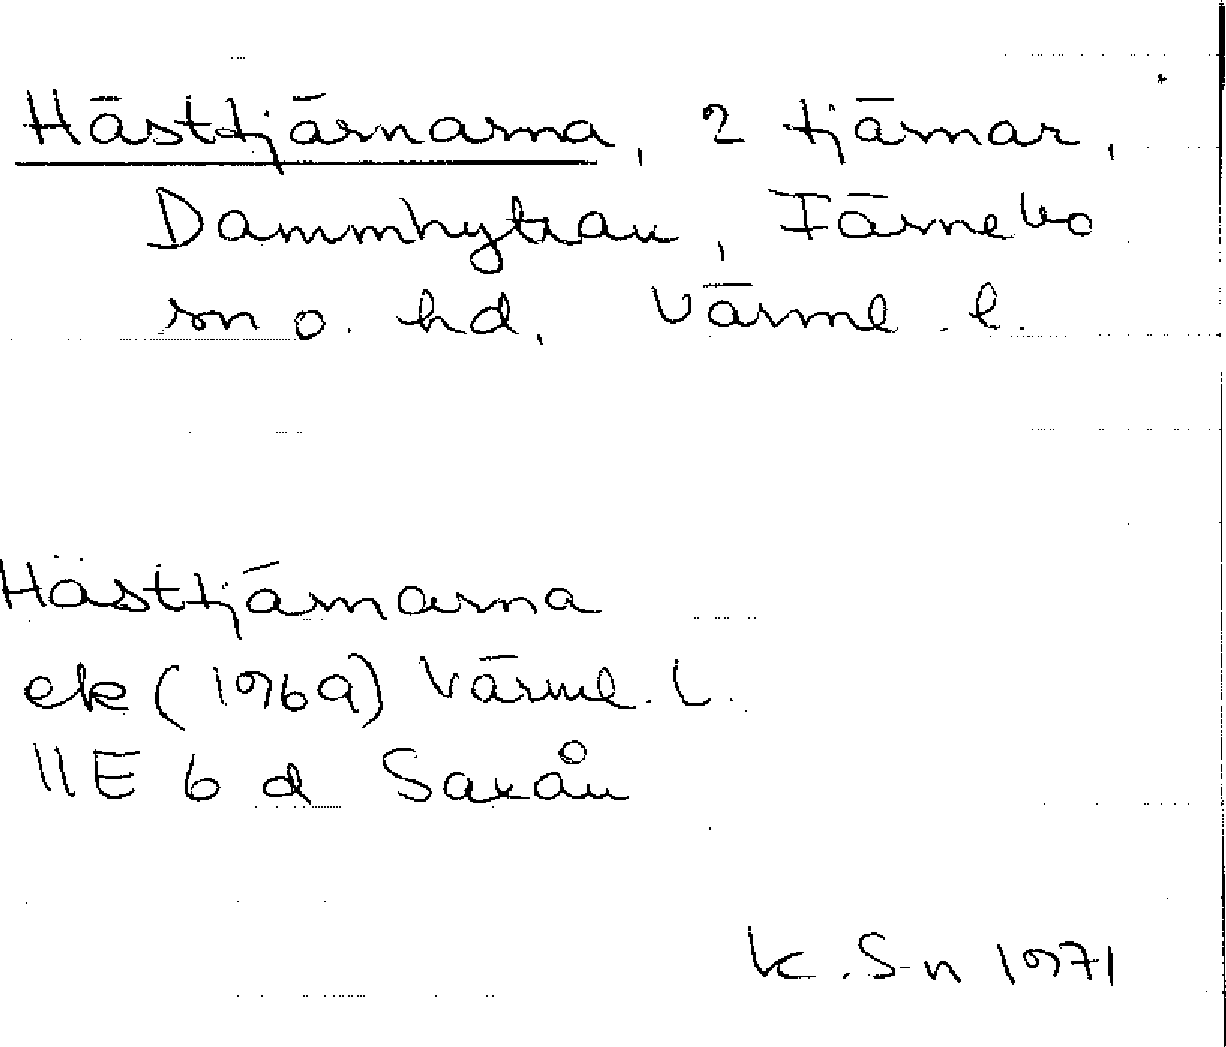 Hästtjärnarna, 2 tjärnar,
Dammhyttan, Färnebo
sn o. hd, Värml. l.
Hästtjärnarna
ek (1969) Värml. L.
11E 6 d Saxån
K. S-n 1971